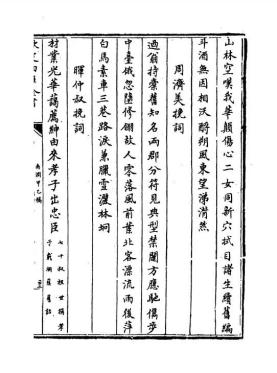 山林空嘆我華顛傷心二女同新穴拭目諸生續舊編
斗酒無因相沃酹朔風東望涕潸然
周濟美挽詞
過翁持橐舊知名兩郡分符見典型禁闥方應馳儁步
中臺俄忽墮修翎故人零落風前葉北客漂流雨後萍
白馬素車三巷路淚兼臘雪灑林坰
暉仲叔挽詞
材業光華藹薦紳由來孝子出忠臣
七十叔祖世
南澗甲乙稿